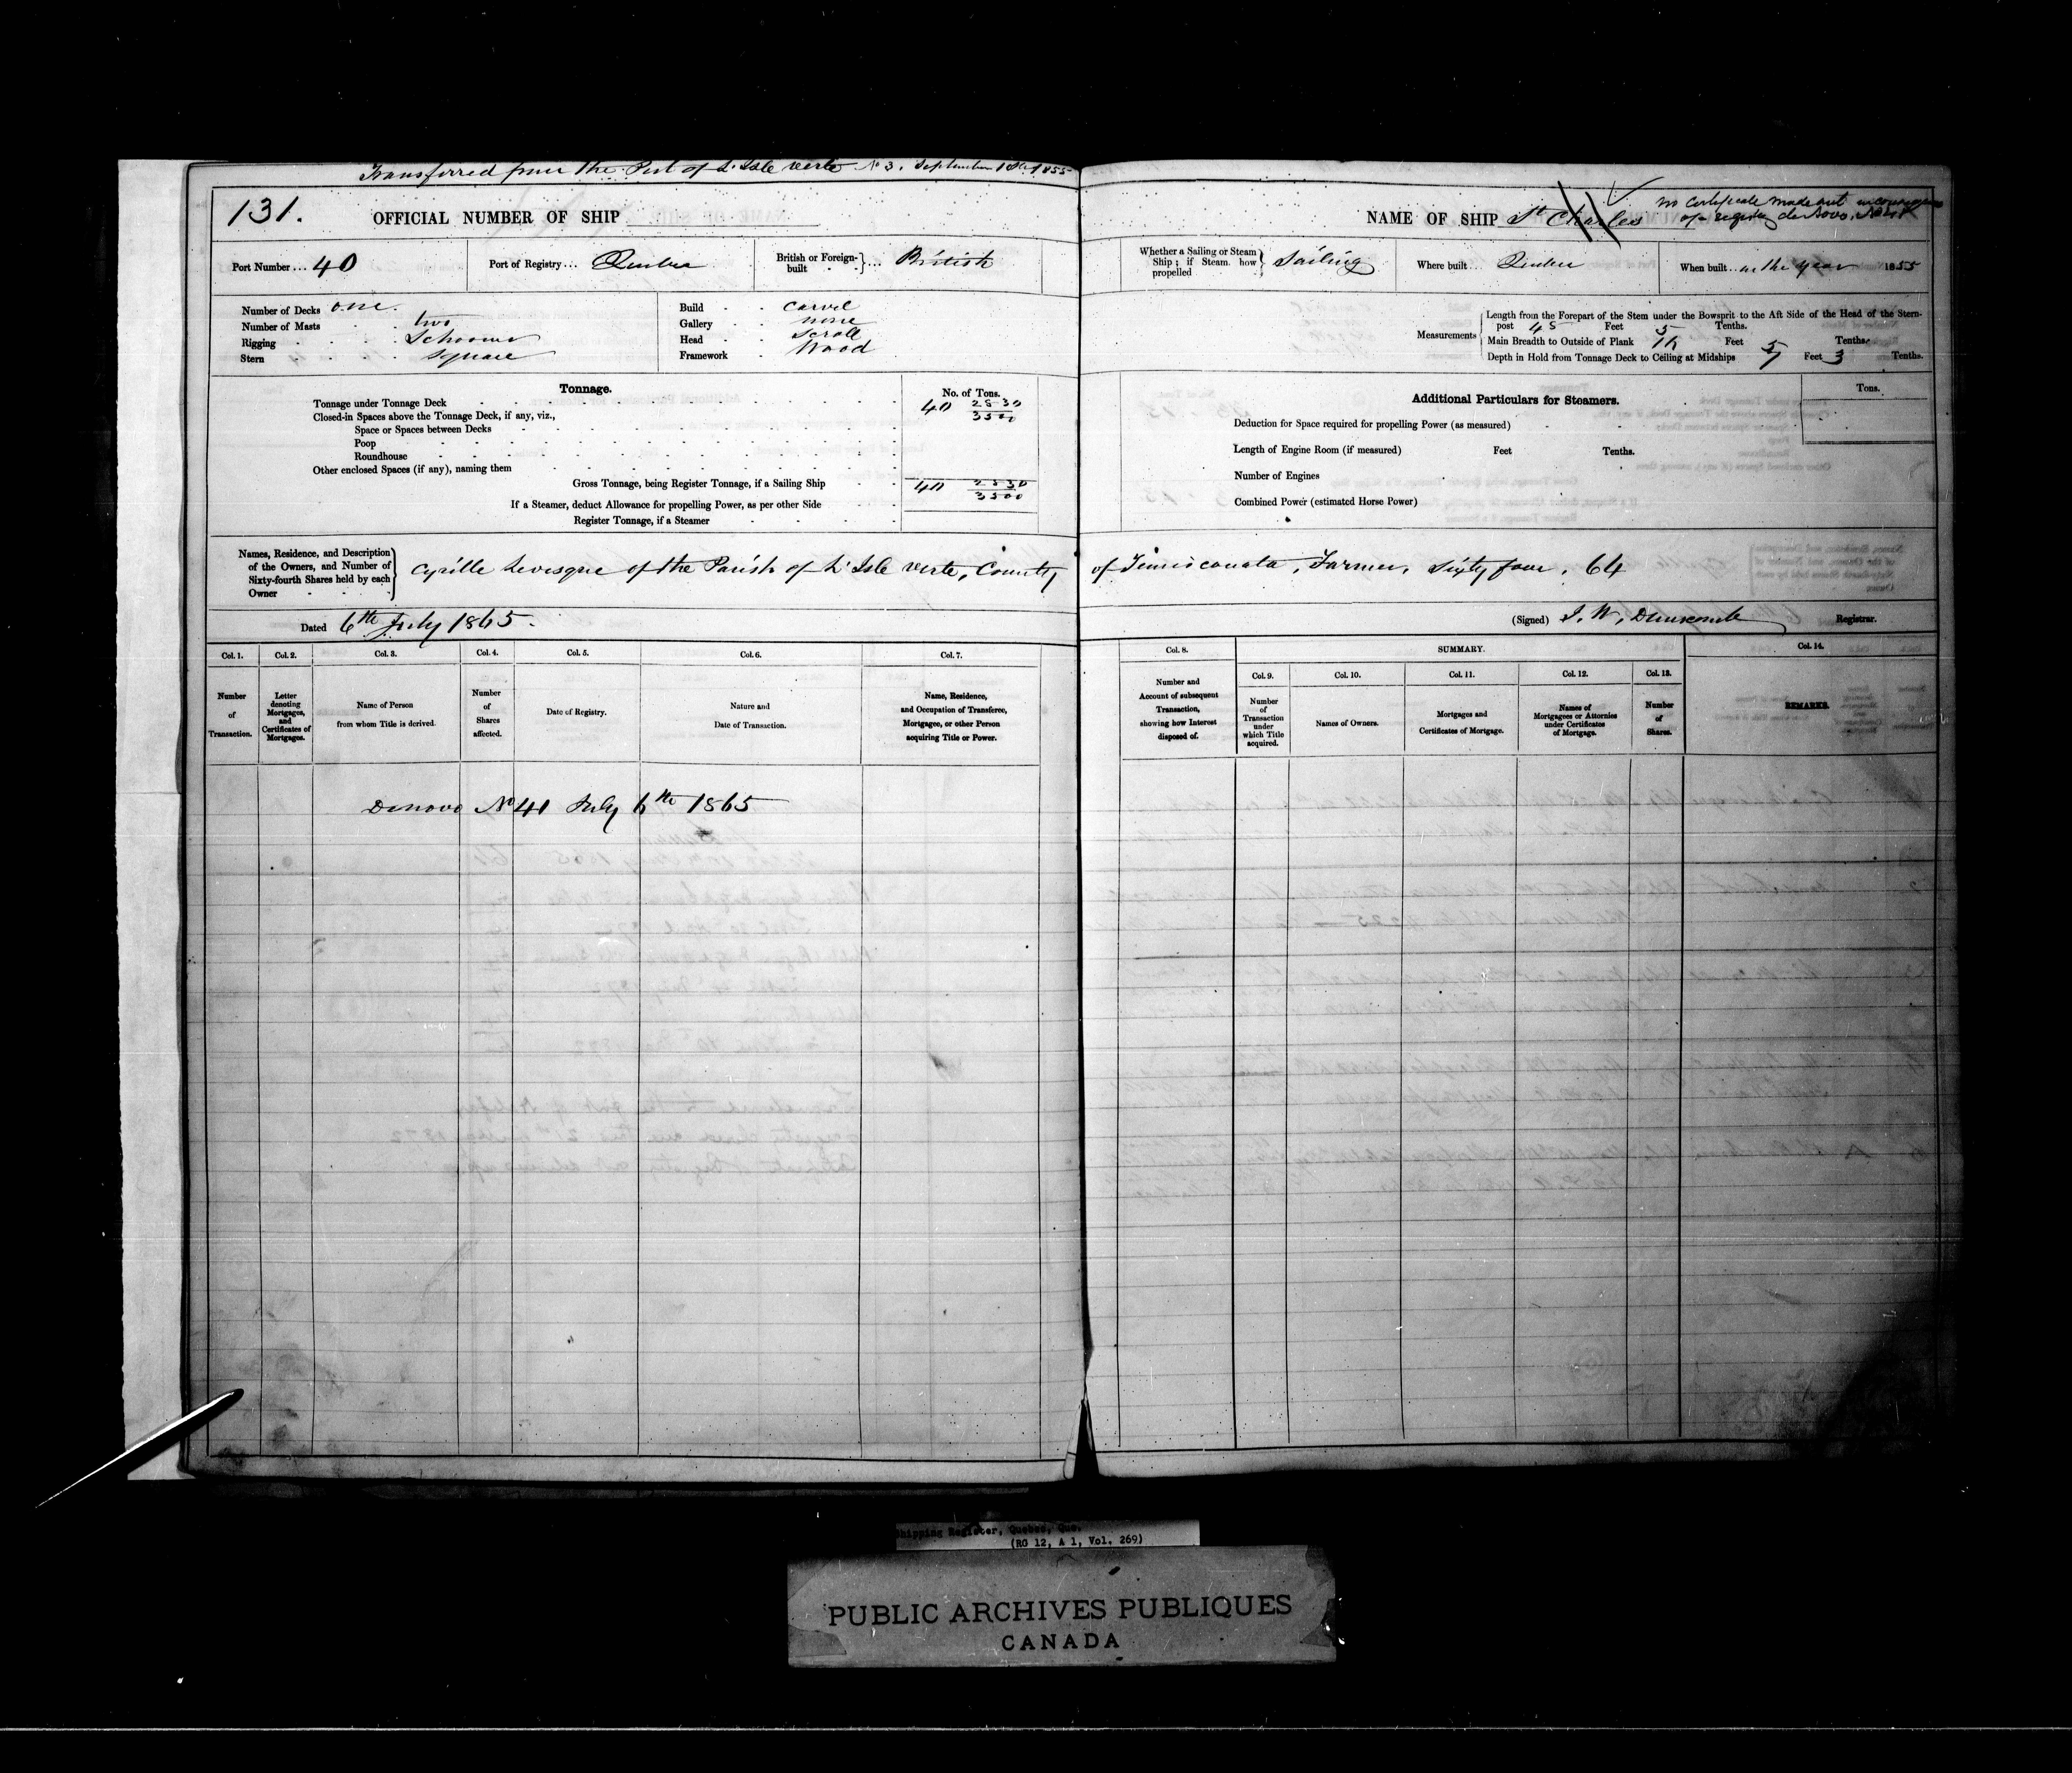 Transferred from the Port of L'Isle verte No 3. September 1855
131.
OFFICIAL NUMBER OF SHIP
NAME OF SHIP St Charles
no Certificate made out in consequence
of registry de Novo. No 41
Port Number ... 40
Port of Registry ... Quebec
British or Foreign-built ... British
Whether a Sailing or Steam Ship; if Steam, how propelled Sailing
Where built ... Quebec
When built ... in the year 1855
Number of Decks one.
Number of Masts two
Rigging Schooner
Stern Square
Build carvel
Gallery none
Head Scroll
Framework Wood
Measurements
Length from the Forepart of the Stem under the Bowsprit to the Aft Side of the Head of the Stern-
post 45 Feet 5 Tenths.
Main Breadth to Outside of Plank Feet 5 Tenths.
Depth in Hold from Tonnage Deck to Ceiling at Midships 7 Feet 3 Tenths.
Tonnage.
No. of Tons.
Tonnage under Tonnage Deck 40 2530/3500
Closed-in Spaces above the Tonnage Deck, if any, viz.,
Space or Spaces between Decks
Poop
Roundhouse
Other enclosed Spaces (if any), naming them
Gross Tonnage, being Register Tonnage, if a Sailing Ship 40 2530/3500
If a Steamer, deduct Allowance for propelling Power, as per other Side
Register Tonnage, if a Steamer
Additional Particulars for Steamers.
Tons.
Deduction for Space required for propelling Power (as measured)
Length of Engine Room (if measured) Feet Tenths.
Number of Engines
Combined Power (estimated Horse Power)
Names, Residence, and Description
of the Owners, and Number of
Sixty-fourth Shares held by each
Owner
Cyrille Levesque of the Parish of L'Isle verte, County of Temiscouata, Farmer, Sixty four, 64
Dated 6th July 1865.
(Signed) J. W. Dunscomb Registrar.
Col. 1. Col. 2. Col. 3. Col. 4. Col. 5. Col. 6. Col. 7.
Number of Transaction.
Letter denoting Mortgages, and Certificates of Mortgages.
Name of Person from whom Title is derived.
Number of Shares affected.
Date of Registry.
Nature and Date of Transaction.
Name, Residence, and Occupation of Transferee, Mortgagee, or other Person acquiring Title or Power.
Col. 8.
Number and Account of subsequent Transaction, showing how Interest disposed of.
SUMMARY.
Col. 9. Col. 10. Col. 11. Col. 12. Col. 13.
Number of Transaction under which Title acquired.
Names of Owners.
Mortgages and Certificates of Mortgage.
Names of Mortgagees or Attornies under Certificates of Mortgage.
Number of Shares.
Col. 14.
REMARKS.
Denovo No 41 July 6th 1865
Shipping Register, Quebec, Que.
(RG 12, A 1, Vol. 269)
PUBLIC ARCHIVES PUBLIQUES
CANADA